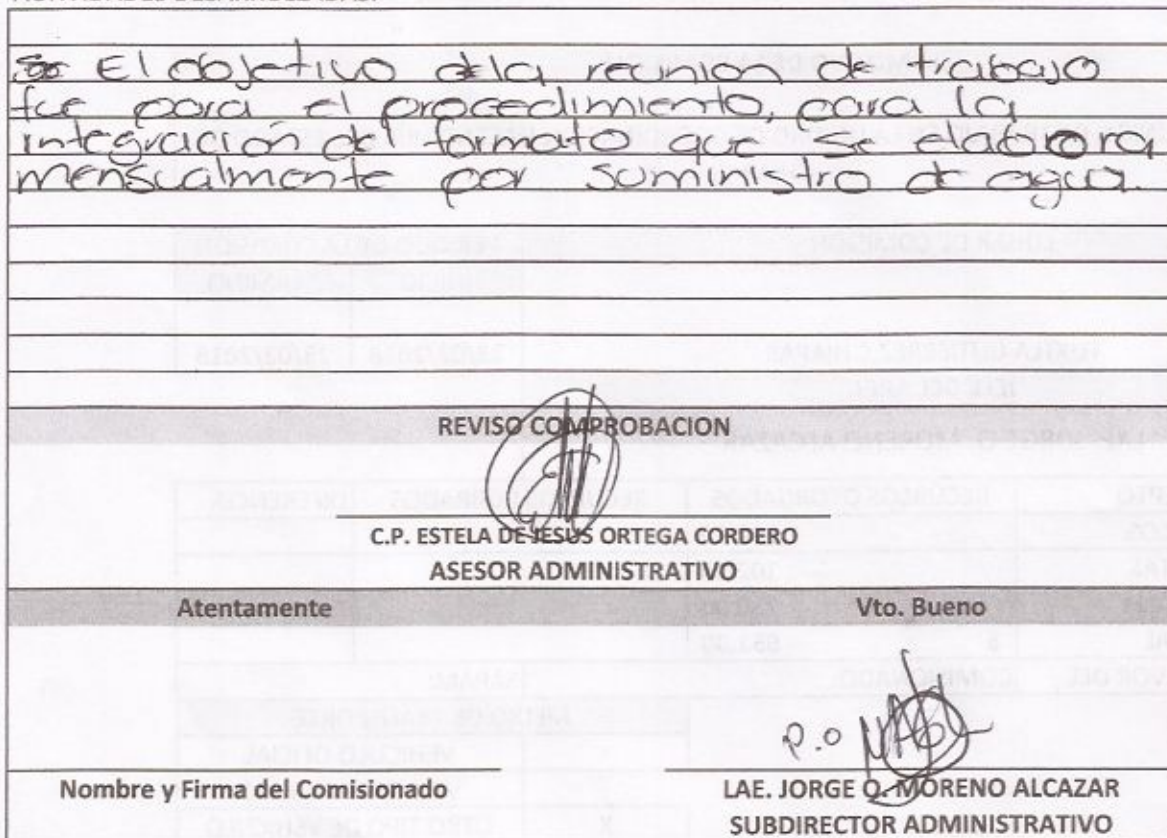 El objetivo dela reunión de trabajo
fue para el procedimiento, para la
integración de formato que se elabora
mensualmente por suministro de agua.
REVISO COMPROBACION
C.P. ESTELA DE JESUS ORTEGA CORDERO
ASESOR ADMINISTRATIVO
Atentamente Vto. Bueno
P.O
Nombre y Firma del Comisionado LAE. JORGE O. MORENO ALCAZAR
SUBDIRECTOR ADMINISTRATIVO